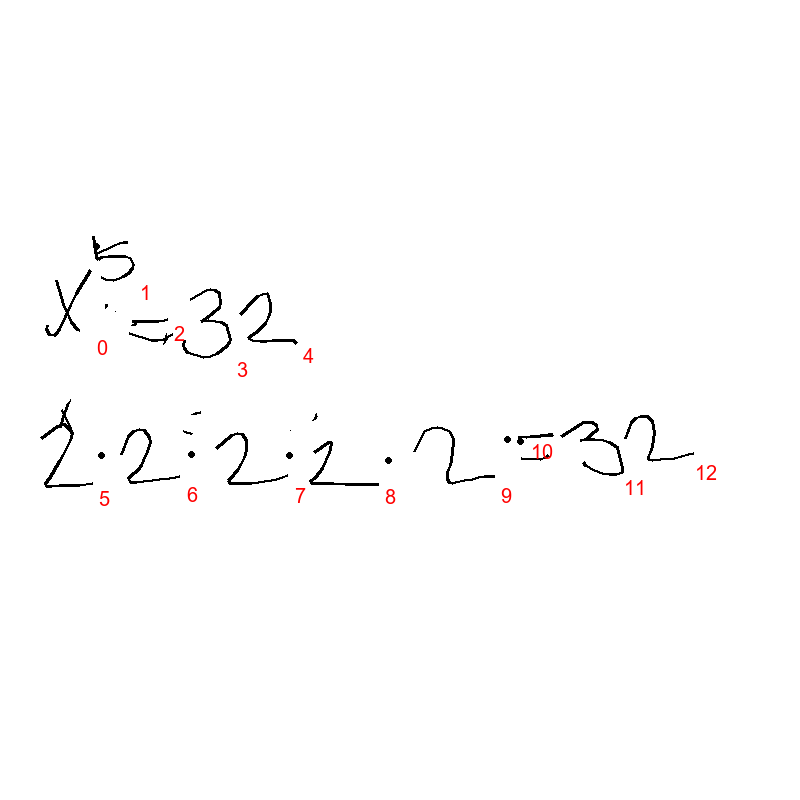 x⁵ = 32
0 1 2 3 4
2 · 2 · 2 · 2 · 2 · = 32
5 6 7 8 9 10 11 12